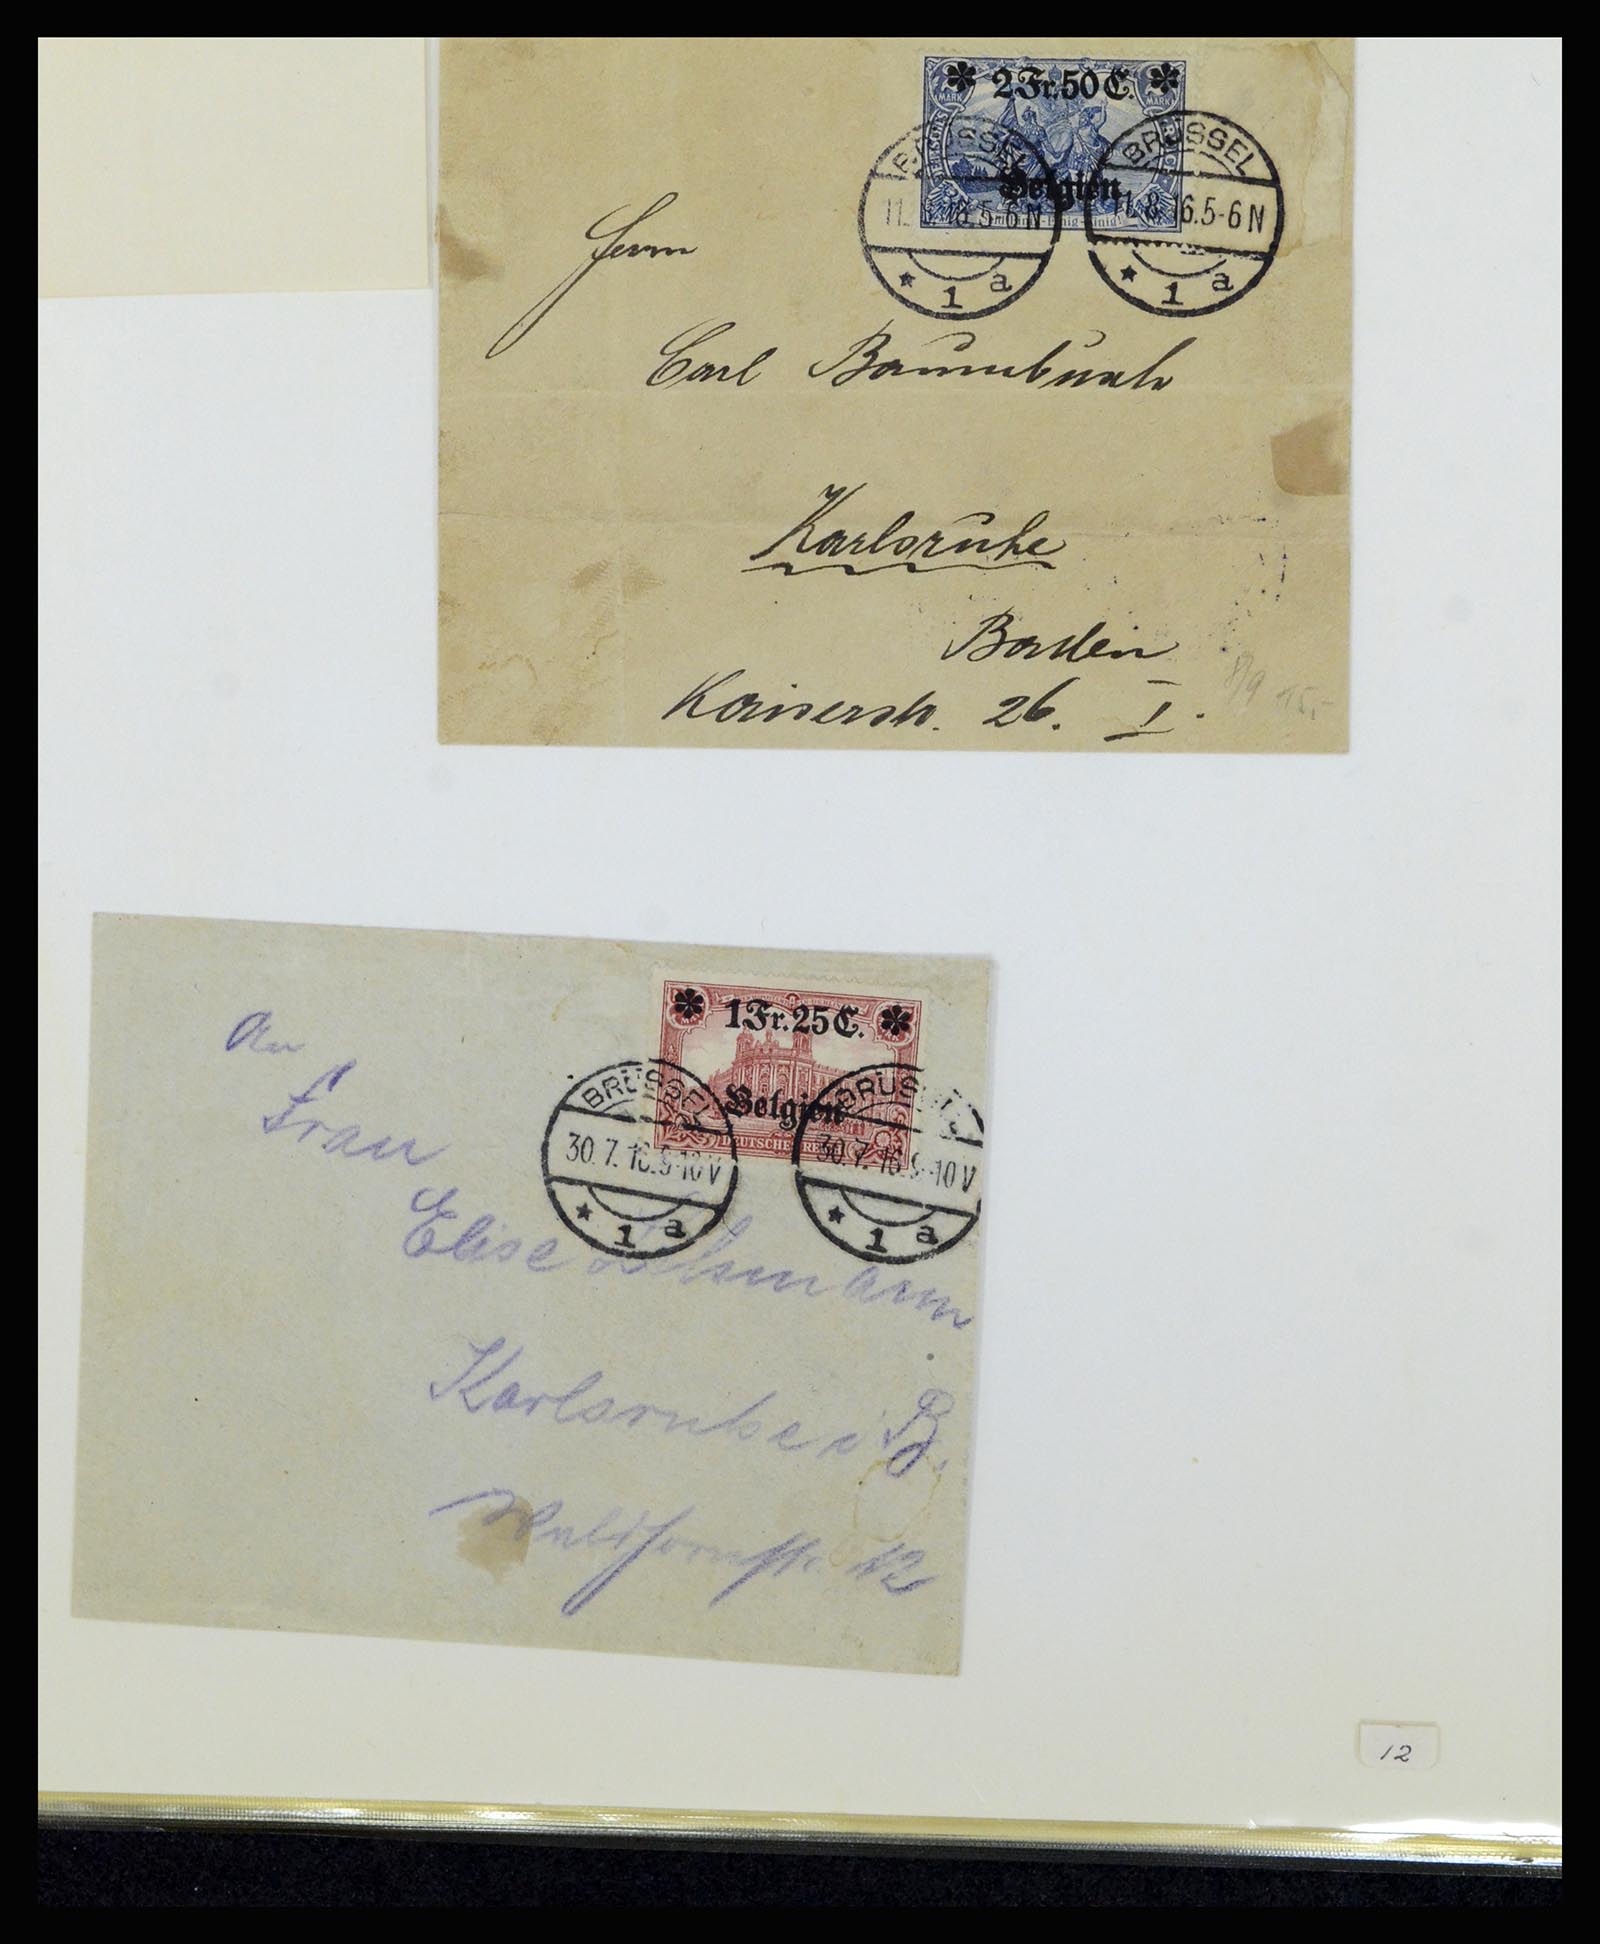 2 Fr. 50 C.
MARK MARK
Belgien
BRÜSSEL BRÜSSEL
11. 8. 16. 5-6 N 11. 8. 16. 5-6 N
* 1 a * 1 a
Herrn
Carl Baumbusch
Karlsruhe
Baden
Kaiserstr. 26. I.
8/9 15,-
1 Fr. 25 C.
Belgien
DEUTSCHES REICH
BRÜSSEL BRÜSSEL
30. 7. 16. 9-10 V 30. 7. 16. 9-10 V
* 1 a * 1 a
An
Frau
Elise
Karlsruhe i B.
Waldhornstr. 12
12